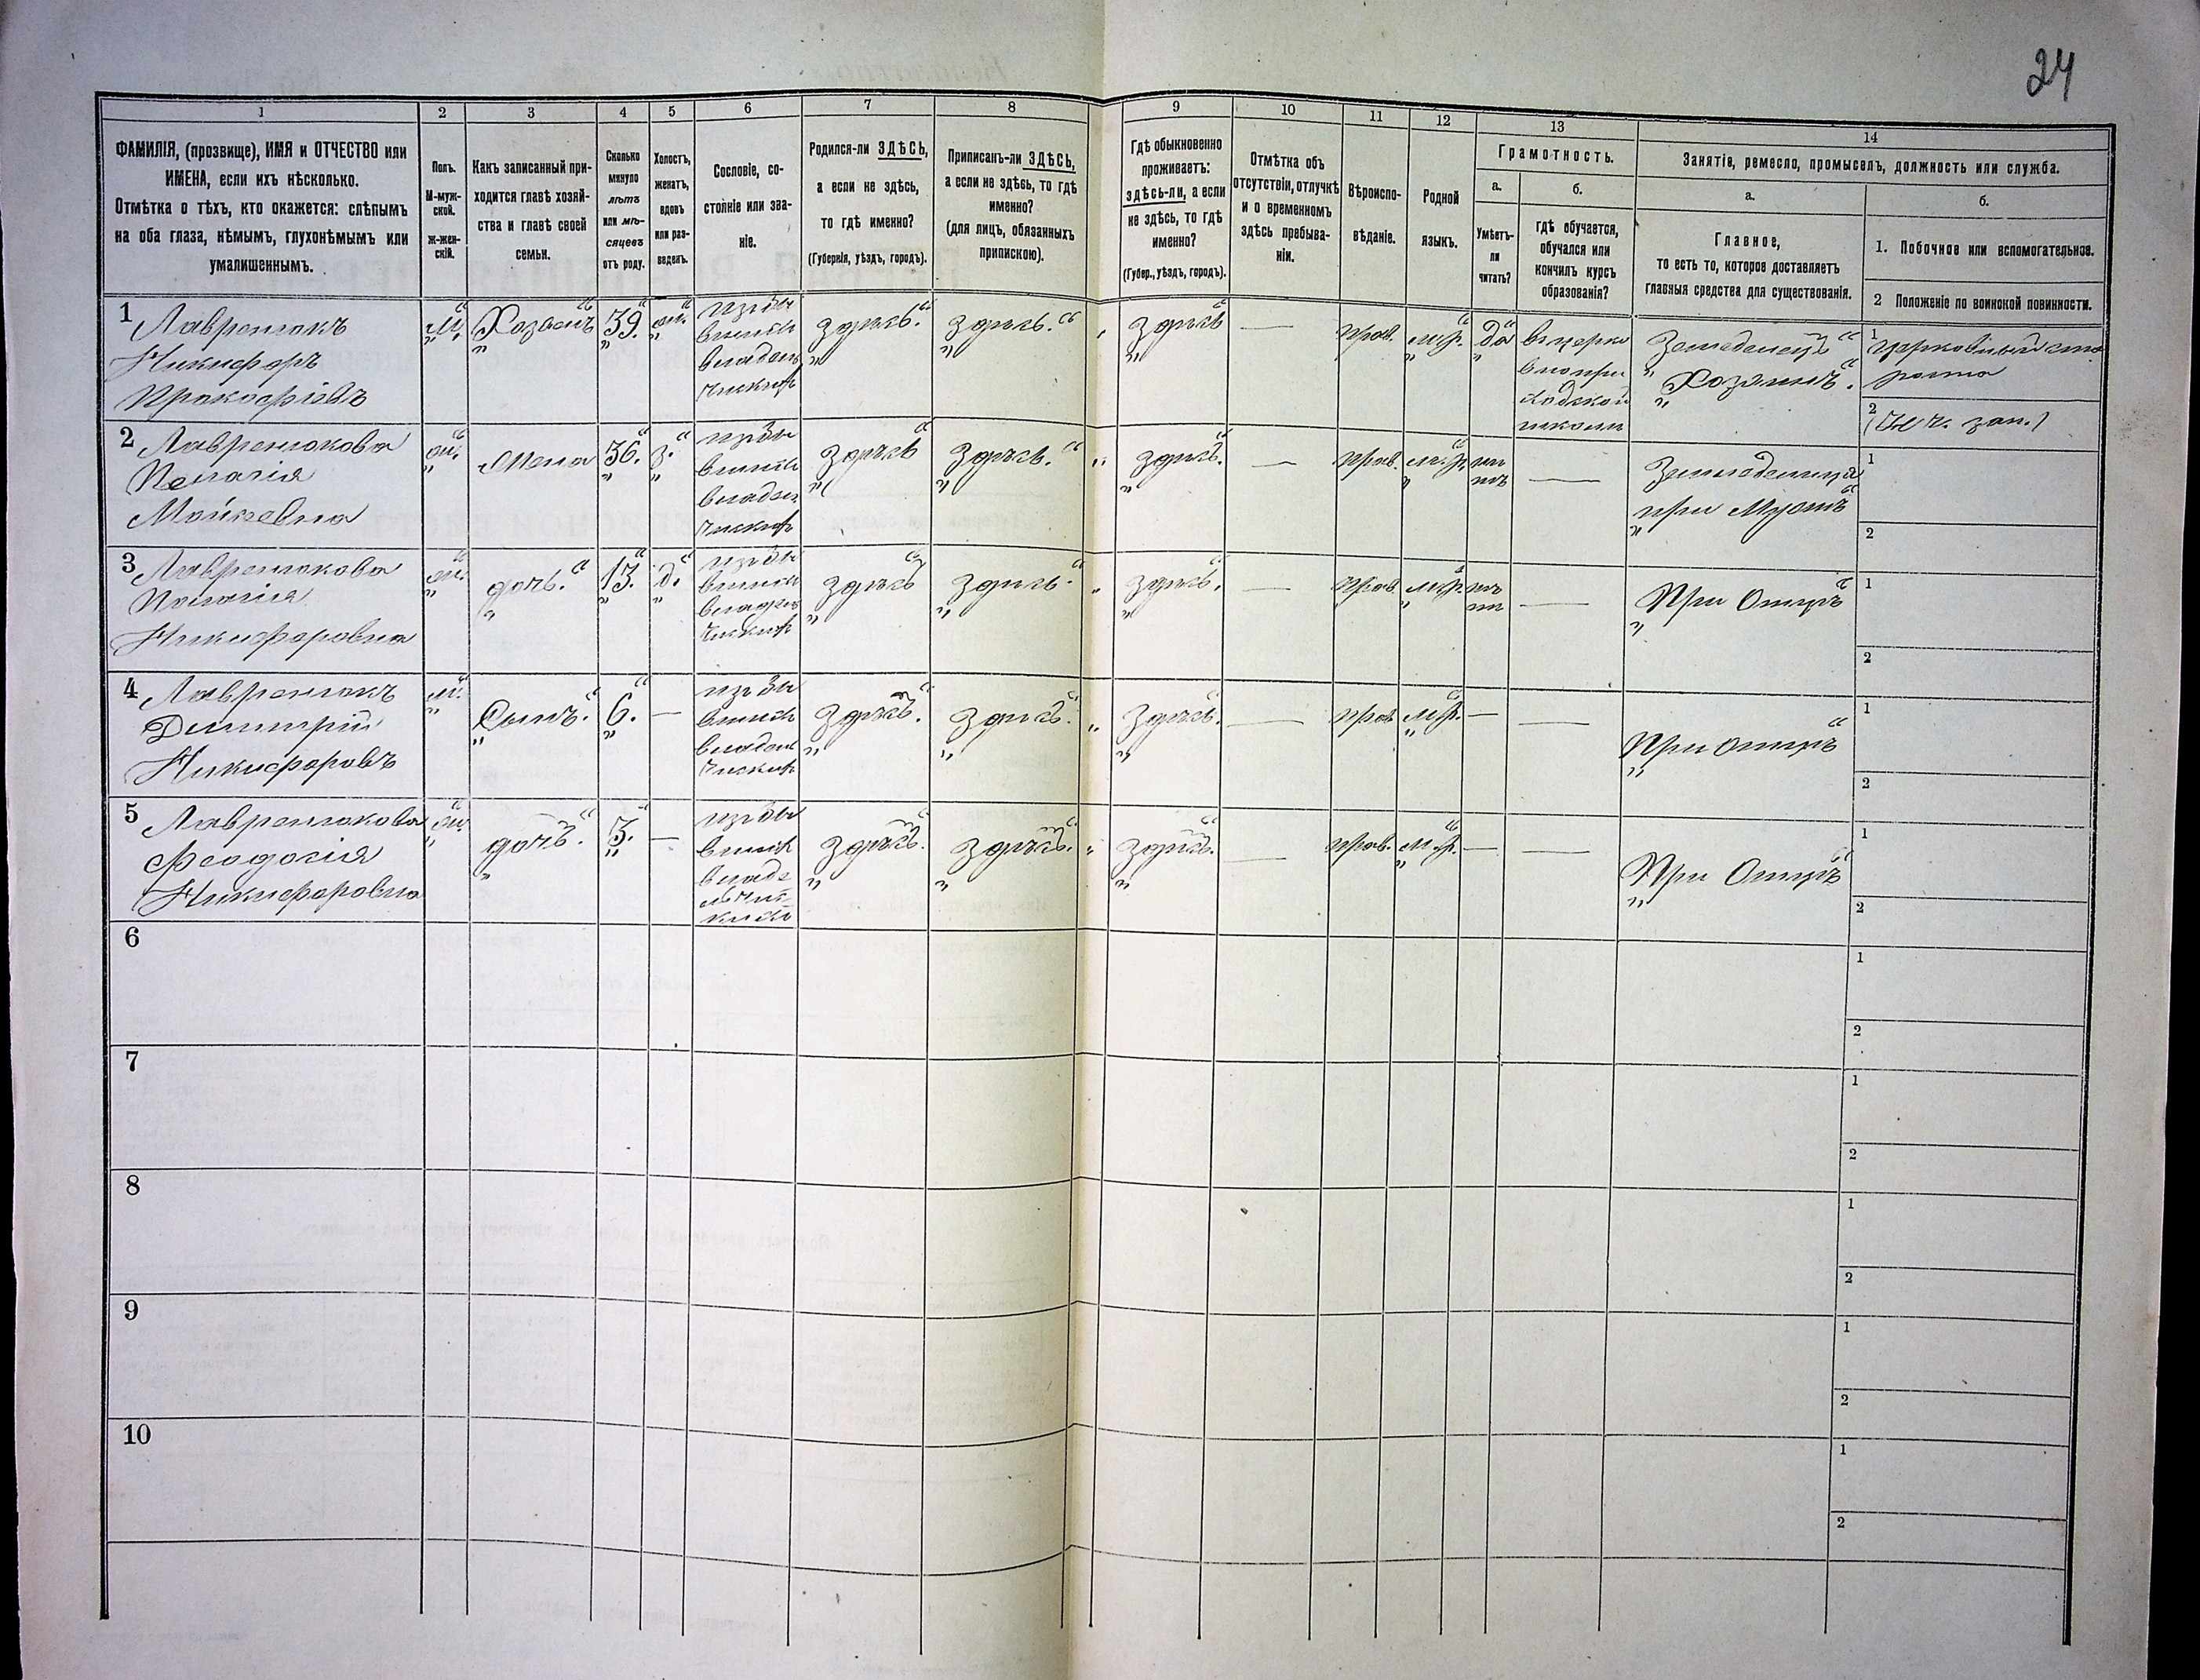 24
1 2 3 4 5 6 7 8 9 10 11 12 13 14
ФАМИЛІЯ, (прозвище), ИМЯ и ОТЧЕСТВО или
ИМЕНА, если ихъ нѣсколько.
Отмѣтка о тѣхъ, кто окажется: слѣпымъ
на оба глаза, нѣмымъ, глухонѣмымъ или
умалишеннымъ.
Полъ.
М-муж-
ской.
Ж-жен-
скій.
Какъ записанный при-
ходится главѣ хозяй-
ства и главѣ своей
семьи.
Сколько
минуло
лѣтъ
или мѣ-
сяцевъ
отъ роду.
Холостъ,
женатъ,
вдовъ
или раз-
веденъ.
Сословіе, со-
стояніе или зва-
ніе.
Родился-ли ЗДѢСЬ,
а если не здѣсь,
то гдѣ именно?
(Губернія, уѣздъ, городъ).
Приписанъ-ли ЗДѢСЬ,
а если не здѣсь, то гдѣ
именно?
(для лицъ, обязанныхъ
припискою).
Гдѣ обыкновенно
проживаетъ:
здѣсь-ли, а если
не здѣсь, то гдѣ
именно?
(Губер., уѣздъ, городъ).
Отмѣтка объ
отсутствіи, отлучкѣ
и о временномъ
здѣсь пребыва-
ніи.
Вѣроиспо-
вѣданіе.
Родной
языкъ.
Грамотность.
а.
Умѣетъ-
ли
читать?
б.
гдѣ обучается,
обучался или
кончилъ курсъ
образованія?
Занятіе, ремесло, промыселъ, должность или служба.
а.
Главное,
то есть то, которое доставляетъ
главныя средства для существованія.
б.
1. Побочное или вспомогательное.
2 Положеніе по воинской повинности.
1 Лавренюкъ
Никифоръ
Прокофіевъ
м.
Хозяинъ
39.
здѣсь.
здѣсь.
здѣсь
—
прав.
м.р.
да
в церко
вноприходской
школи
Земледелецъ
Хозяинъ.
1 Церковный ста
роста
2
2 Лавренюкова
Пелагія
Мойсевна
ж.
Жена
36.
з.
здѣсь
здѣсь.
здѣсь.
—
прав.
м.р.
нѣтъ
—
Земледелица
при Мужѣ
1
2
3 Лавренюкова
Пелагія
Никифоровна
ж.
дочь.
13.
д.
здѣсь
здѣсь.
здѣсь.
—
прав.
м.р.
—
При Отцѣ
1
2
4 Лавренюкъ
Димитрій
Никифоровъ
м.
Сынъ.
6.
—
здѣсь.
здѣсь.
здѣсь.
—
прав
м.р.
—
—
При Отцѣ
1
2
5 Лавренюкова
Феодосія
Никифоровна
ж.
дочь.
3.
—
здѣсь.
здѣсь.
здѣсь.
—
прав.
м.р.
—
—
При Отцѣ
1
2
6
1
2
7
1
2
8
1
2
9
1
2
10
1
2